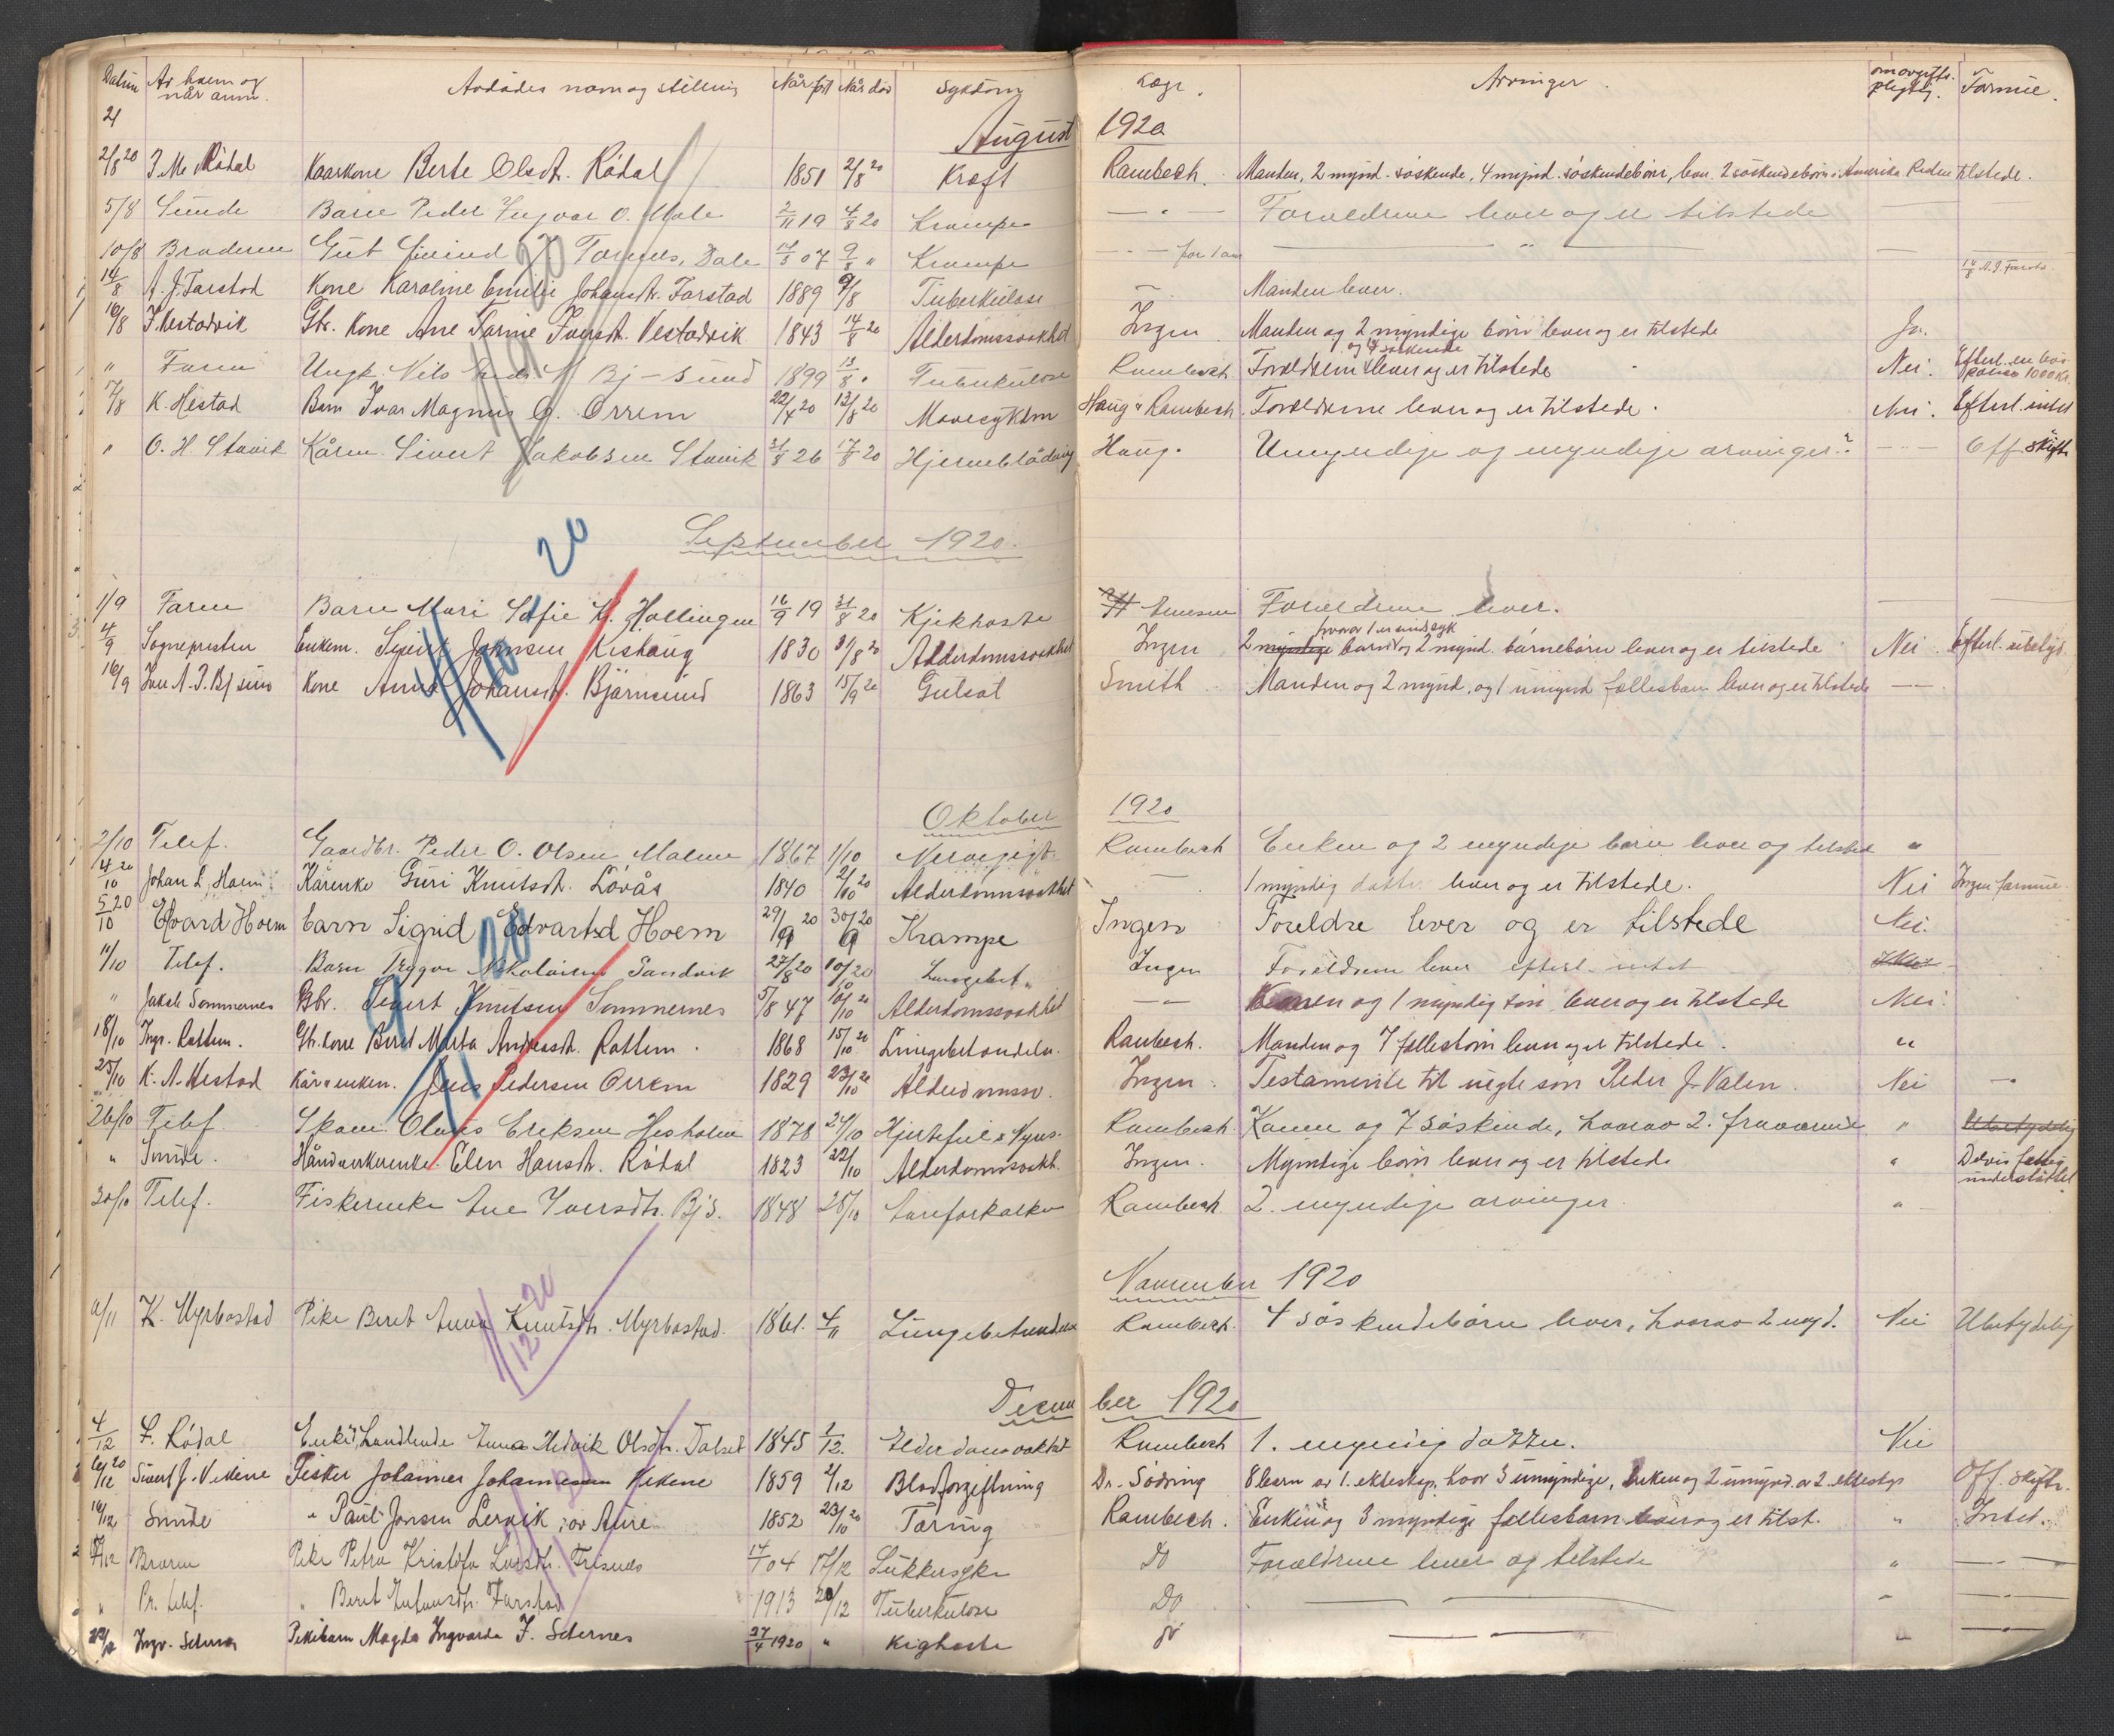 Datum Av hvem og når anm. Avdødes navn og stilling Når føt Når død Sykdom Læge. Arvinger. om avgifts-pligtig. Formue.
21
August 1920
2/8 20 J. M. Rødal Kaarkone Berte Olsdt. Rødal 1851 2/8 20 Kræft Rambech. Manden, 2 mynd. søskende, 4 mynd. søskendebørn, lever. 2 søskendebørn i Amerika Resten tilstede.
5/8 Sunde Barn Peder Ingvar O. Male 2/11 19 4/8 20 Krampe — " — Forældrene lever og er tilstede —
10/8 Broderen Gut Eivind Tornes, Dale 07 9/8 " Krampe — — for 1 aar — " — — —
14/8 A. J. Farstad Kone Karoline Emilie Johansdt. Farstad 1889 9/8 Tuberkulose — Manden lever. 14/8 A. J. Farstad
16/8 J. Vestadvik Gbr. Kone Ane Marine Iversdt. Vestadvik 1843 14/8 20 Alderdomssvakhet Ingen Manden og 2 myndige børn lever og er tilstede Ja.
" Faren Ungk. Nils Bj-sund 1899 13/8 " Tuberkulose Rambech. Forældrene og 4 søskende lever og er tilstede Nei. Efterl. en 1000 kr.
17/8 K. Hestad Barn Ivar Magnus O. Orrem 22/4 20 13/8 20 Mavesykdm Haug & Rambech. Forældrene lever og er tilstede. Nei. Efterl. intet
" O. H. Stavik Kårm. Sivert Jakobsen Stavik 31/8 26 17/8 20 Hjerneblødning Haug. Umyndige og myndige arvinger? — " — Off skifte
11/9 20
September 1920.
1/9 Faren Barn Mari Sofie K. Hollingen 16/9 19 31/8 20 Kjikhoste Arnesen Forældrene lever. — —
4/9 Sognepresten Enkem. Sivert Johnsen Kishaug 1830 31/8 20 Alderdomssvakhet Ingen 2 myndige barn hvorav 1 er sindssyk og 2 mynd. børnebørn lever og er tilstede Nei Efterl. ubetyd.
16/9 A. J. Bjsund Kone Anne Johansdt. Bjørnsund 1863 15/9 20 Gulsot Smith Manden og 2 mynd. og 1 umynd fællesbarn lever og er tilstede —
11/10 20
Oktober 1920
2/10 Telef. Gaardbr. Peder O. Olsen Malme 1867 1/10 Nervegigt Rambech Enken og 2 myndige børn lever og tilsted "
4/10 20 Johan L. Hoem Kårenke Guri Knutsdt. Løvås 1840 2/10 20 Alderdomssvakhet — 1 myndig datter lever og er tilstede. Nei Ingen formue.
5/10 20 Edvard Hoem barn Sigrid Edvartsd Hoem 29/9 20 30/9 20 Krampe Ingen Foreldre lever og er tilstede Nei.
11/10 Telef. Barn Trygve Nikolaisen Sandvik 27/8 20 10/10 20 Lungebet. Ingen Forældrene lever efterl. intet
" Jakob Sommernes Gbr. Sivert Knutsen Sommernes 5/8 47 10/10 20 Alderdomssvakhet — " — Konen og 1 myndig søn lever og er tilstede Nei.
18/10 Ingr. Rottem. Gbr. kone Beret Marta Andreasdt. Rottem. 1868 15/10 20 Lungebetændelse. Rambech. Manden og 7 fællesbørn lever og er tilstede. "
25/10 K. A. Hestad Kårenkem. Jens Pedersen Orrem 1829 23/10 20 Alderdomssv. Ingen. Testamente til uegte søn Peder J. Valen. Nei —
26/10 Telef. Skom. Oluves Eriksen Hesholm 1878 24/10 Hjertefeil & Nyres. Rambech. Konen og 7 søskende, hvorav 2 fraværende " Ubetydelig
" Sunde. Håndverkerenke Elen Hansdt. Rødal 1823 22/10 Alderdomssvakh. Ingen. Myndige børn lever og er tilstede " Delvis fattig understøttet.
30/10 Telef. Fiskerenke Ane Iversdt. Bjs. 1848 28/10 Aareforkalkn Rambech. 2 myndige arvinger. "
11/11 20
November 1920
K. Myrbostad Pike Beret Anna Knutsdt. Myrbostad. 1861. 4/11 Lungebetændelse Rambech. 4 søskendebørn lever, hvorav 2 mynd. Nei Ubetydelig
11/12 20
December 1920
4/12 L. Rødal Enke Anna Hedvik Olsdt. Dalset 1845 2/12. Alderdomssvakhet Rambech 1. myndig datter. Nei
6/12 20 Sivert J. Vikene Fisker Johannes Johannesen Vikene 1859 2/12 Blodforgiftning Dr. Sødring 8 barn av 1. ekteskap, hvor 3 umyndige, enken og 2 umynd. av 2. ekteskap Off. skifte.
16/12 Sunde " Paul Jonsen Lervik, av Aure 1852 23/10 20 Tæring Rambech. Enken og 3 myndige fællesbarn lever og er tilst. " Intet.
Broren Pike Petra Kristofa Larsdt. Frisnes 04 17/12 Sukkersyke Do Forældrene lever og tilstede " —
" Pr. telef. " Beret Johansdt. Farstad 1913 20/12 Tuberkulose Do — — " —
22/12 Ingv. Seternes Pikebarn Magda Ingvarda J. Seternes 27/4 1920 " Kighoste do — " — " —